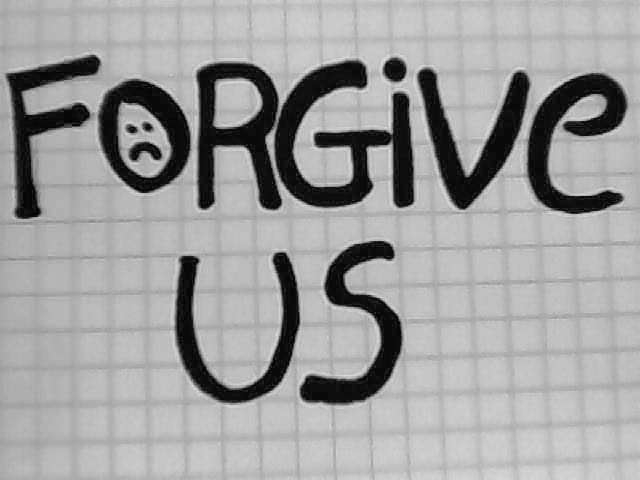 FORGiVe
US